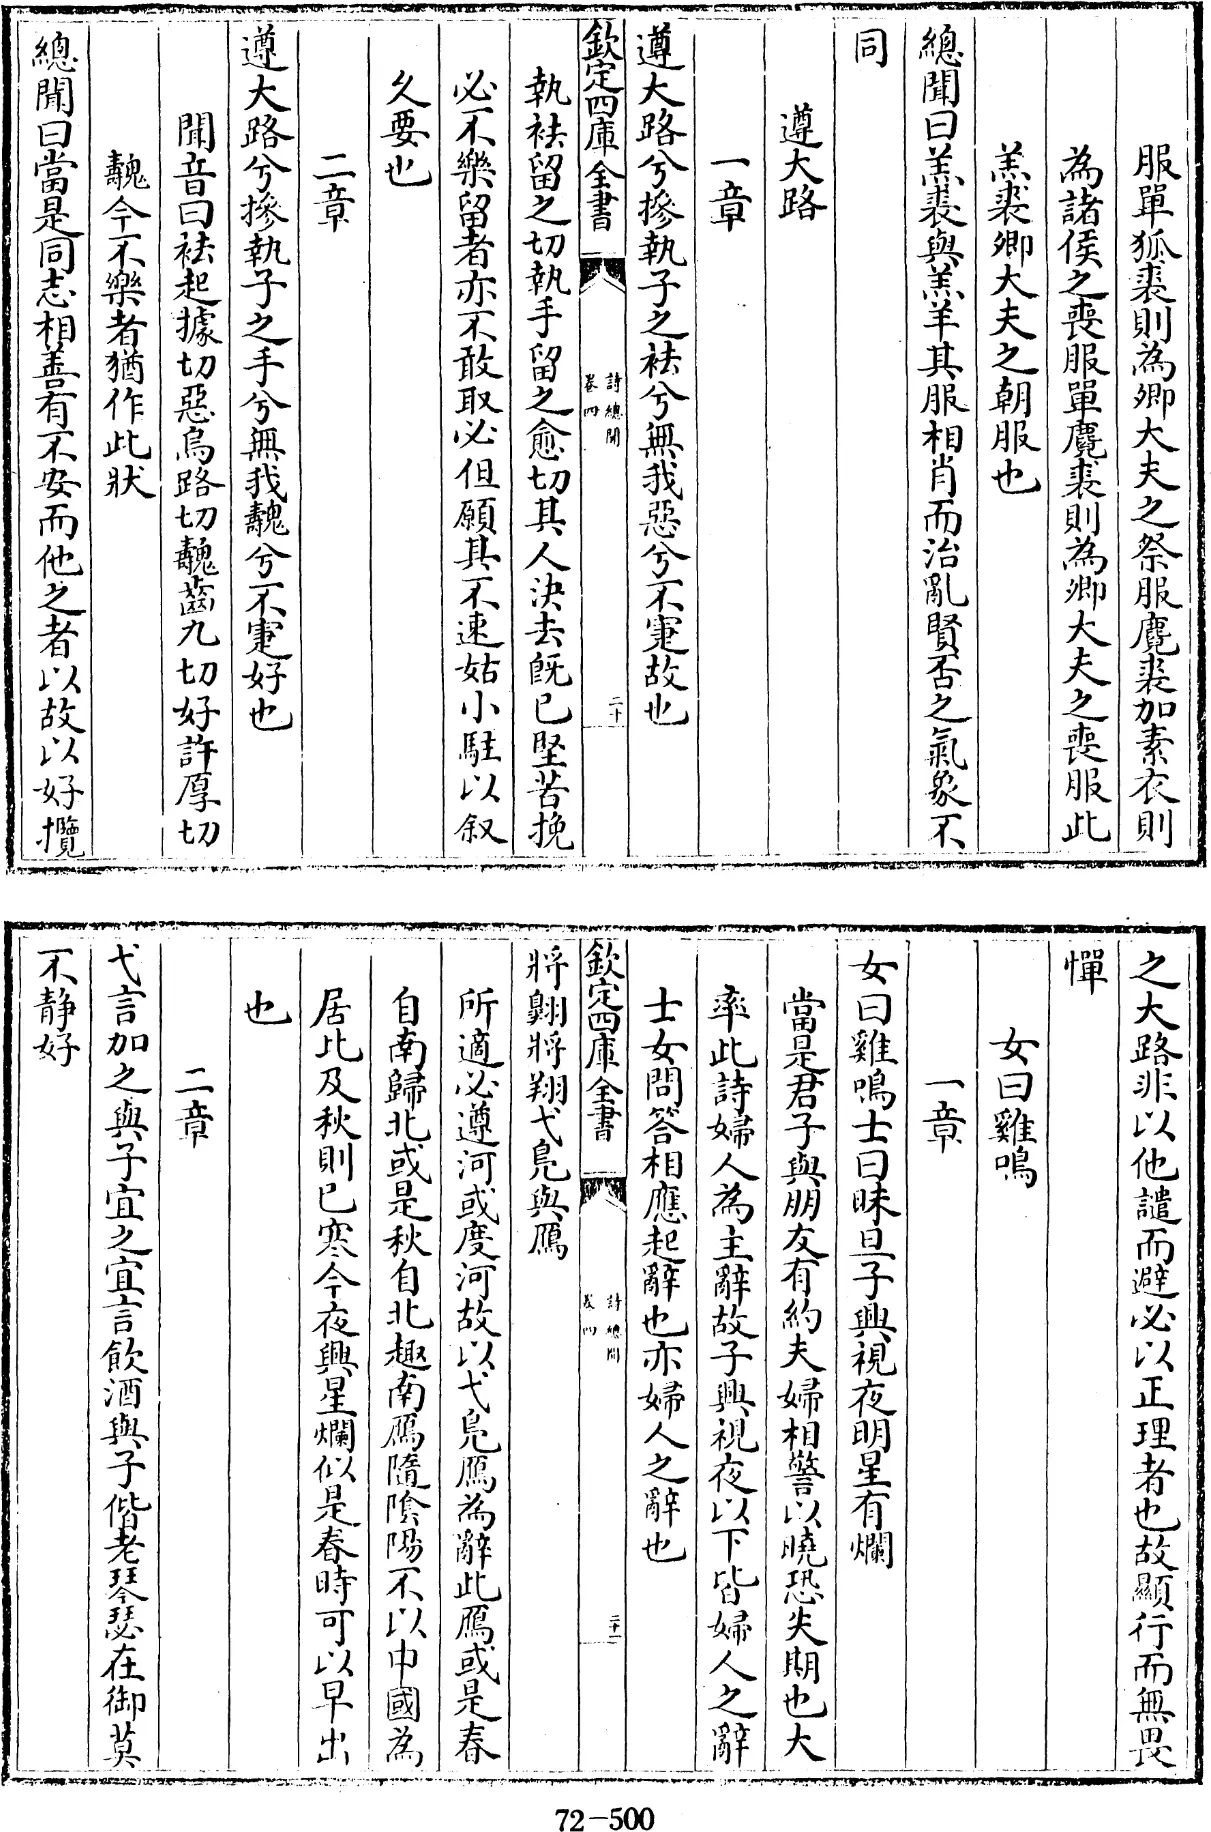 服單狐裘則為卿大夫之祭服麑裘加素衣則
為諸侯之喪服單麑裘則為卿大夫之喪服此
羔裘卿大夫之朝服也
總聞曰羔裘與羔羊其服相肖而治亂賢否之氣象不
同
遵大路
一章
遵大路兮摻執子之袪兮無我惡兮不寁故也
欽定四庫全書
詩總聞
卷四
二十
執袪留之切執手留之愈切其人決去既已堅苦挽
必不樂留者亦不敢取必但願其不速姑小駐以叙
久要也
二章
遵大路兮摻執子之手兮無我魗兮不寁好也
聞音曰袪起據切惡烏路切魗齒九切好許厚切
魗今不樂者猶作此狀
總聞曰當是同志相善有不安而他之者以故以好攬
之大路非以他譴而避必以正理者也故顯行而無畏
憚
女曰雞鳴
一章
女曰雞鳴士曰昧旦子興視夜明星有爛
當是君子與朋友有約夫婦相警以曉恐失期也大
率此詩婦人為主辭故子興視夜以下皆婦人之辭
士女問答相應起辭也亦婦人之辭也
欽定四庫全書
詩總聞
卷四
二十一
將翺將翔弋鳧與鴈
所適必遵河或度河故以弋鳧鴈為辭此鴈或是春
自南歸北或是秋自北趣南鴈隨陰陽不以中國為
居此及秋則已寒今夜興星爛似是春時可以早出
也
二章
弋言加之與子宜之宜言飲酒與子偕老琴瑟在御莫
不静好
72-500